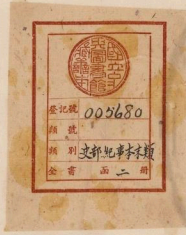 登記號 005680
類 號
類 別 史部紀事本末類
全書 函 二 冊